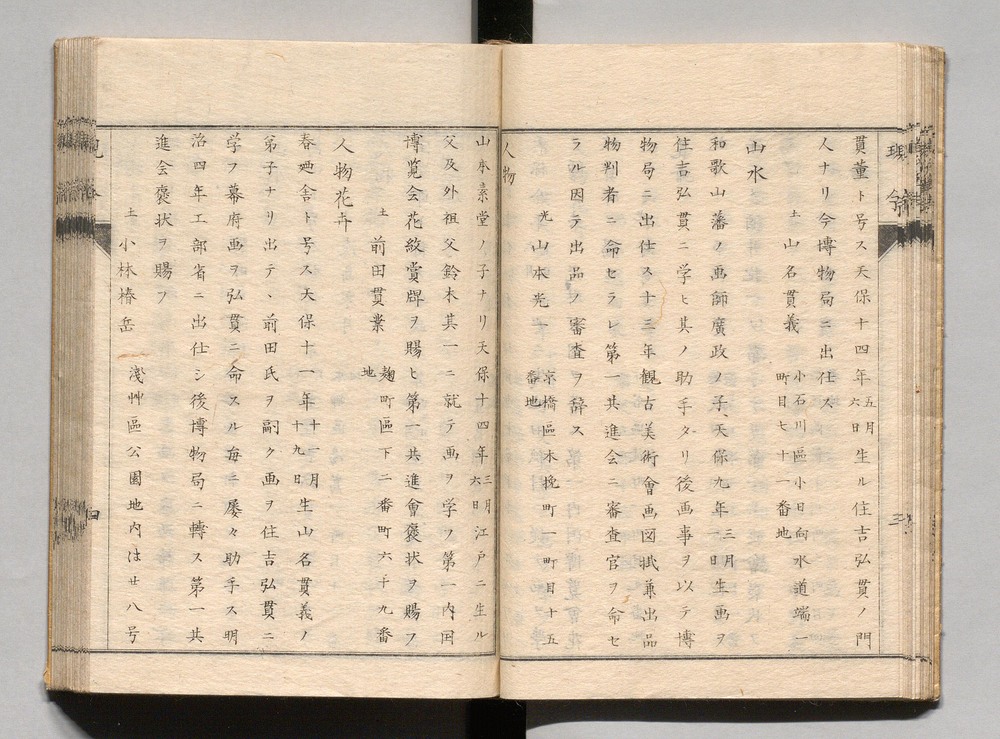 貫董ト号ス天保十四年五月六日生ル住吉弘貫ノ門
人ナリ今博物局ニ出仕ス
土 山名貫義 小石川區小日向水道端一町目七十一番地
山水
和歌山藩ノ画師廣政ノ子天保九年三月一日生画ヲ
住吉弘貫ニ学ヒ其ノ助手タリ後画事ヲ以テ博
物局ニ出仕ス十三年観古美術會画図掛兼出品
物判者ニ命セラレ第一共進会ニ審査官ヲ命セ
ラル因テ出品ノ審査ヲ辞ス
光 山本光一 京橋區木挽町一町目十五番地
人物
山本素堂ノ子ナリ天保十四年三月六日江戸ニ生ル
父及外祖父鈴木其一ニ就テ画ヲ学フ第一内国
博覧会花紋賞牌ヲ賜ヒ第一共進會褒状ヲ賜フ
土 前田貫業 麹町區下二番町六十九番地
人物花卉
春廼舎ト号ス天保十一年十月十九日生山名貫義ノ
弟子ナリ出テ、前田氏ヲ副ク画ヲ住吉弘貫ニ
学フ幕府画ヲ弘貫ニ命スル毎ニ屡々助手ス明
治四年工部省ニ出仕シ後博物局ニ轉ス第一共
進会褒状ヲ賜フ
土 小林椿岳 浅艸區公園地内は廿八号
四